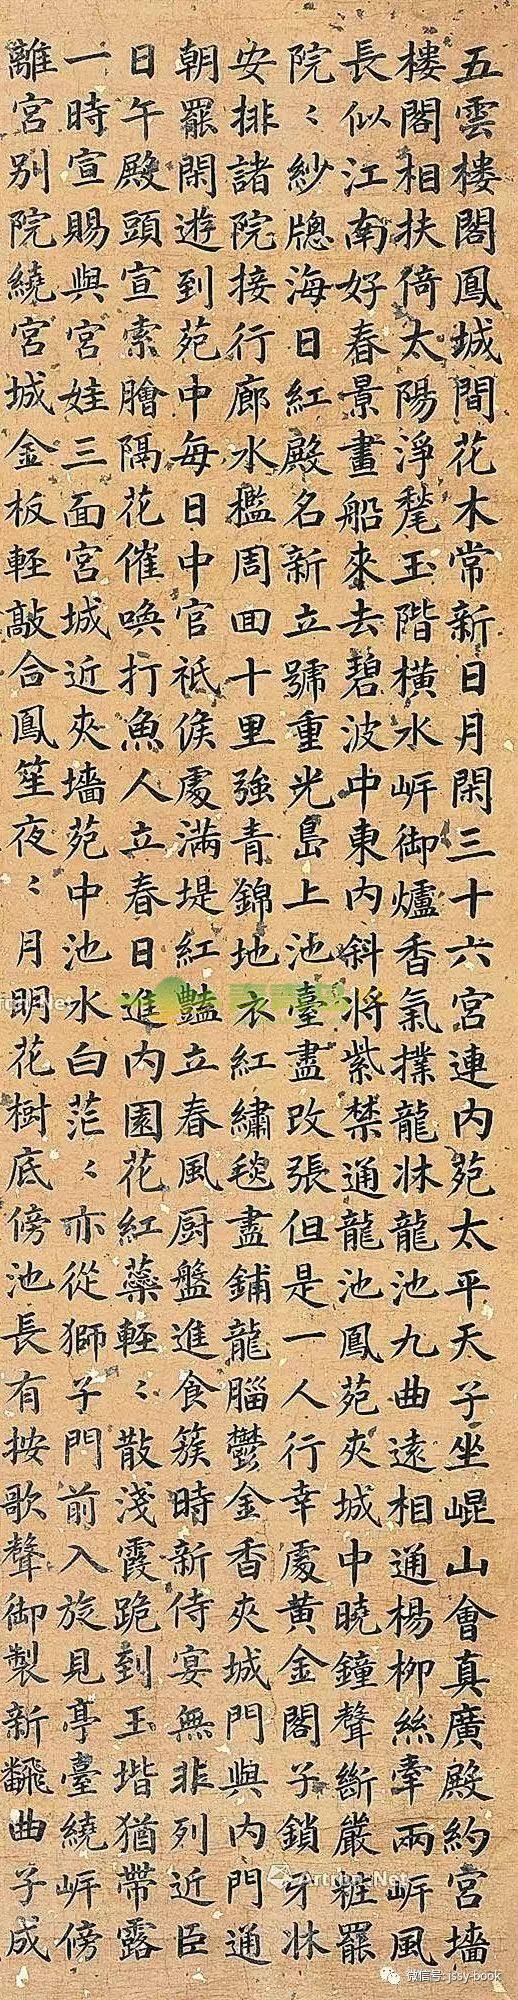 五雲楼閣鳳城間花木常新日月閑三十六宮連内苑太平天子坐崐山會真廣殿約宮墻
楼閣相扶倚太陽淨甃玉階橫水岸御爐香氣撲龍牀龍池九曲遠相通楊柳絲牽兩岸風
長似江南好春景畫船來去碧波中東内斜將紫禁通龍池鳳苑夾城中曉鐘聲斷嚴粧罷
院〻紗牕海日紅殿名新立號重光島上池臺盡改張但是一人行幸處黃金閣子鎖牙牀
安排諸院接行廊水檻周回十里強青錦地衣紅繡毯盡鋪龍腦鬱金香夾城門與内門通
朝罷閑遊到苑中每日中官祗候處滿堤紅豔立春風厨盤進食簇時新侍宴無非列近臣
日午殿頭宣索膾隔花催喚打魚人立春日進内園花紅蘂輕〻散淺霞跪到玉堦猶帶露
一時宣賜與宮娃三面宮城近夾墻苑中池水白茫〻亦從獅子門前入旋見亭臺繞岸傍
離宮别院繞宮城金板輕敲合鳳笙夜〻月明花樹底傍池長有按歌聲御製新飜曲子成
微信号: jssy-book
Artron.Net